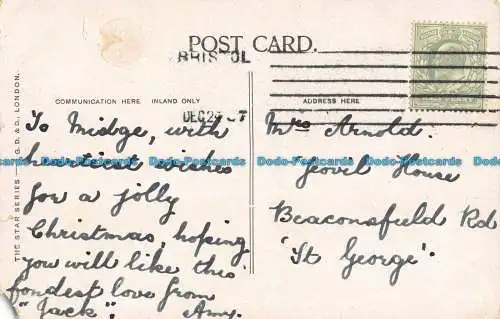 POST CARD.
BRISTOL
COMMUNICATION HERE INLAND ONLY
ADDRESS HERE
DEC 2 07
THE STAR SERIES — G. D. & D., LONDON.
To Midge, with
heartiest wishes
for a jolly
Christmas, hoping
you will like this
fondest love from
"Jack". Amy.
Mrs Arnold.
Yeovil House
Beaconsfield Rd
"St George".
Dodo-Postcards Dodo-Postcards Dodo-Postcards Dodo-Postcards Dodo-Postcards